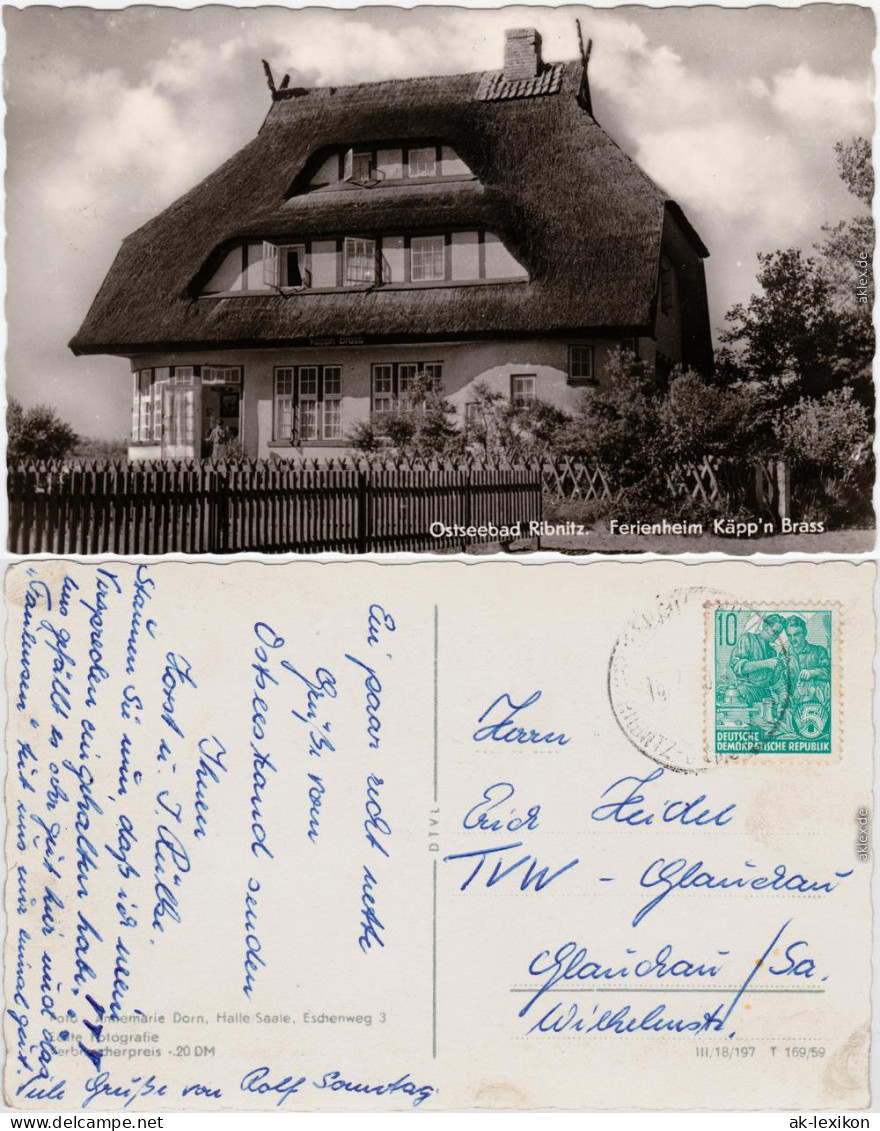 Käpp'n Brass
Ostseebad Ribnitz. Ferienheim Käpp'n Brass
aklex.de
Ein paar recht nette
Grüße vom
Ostseestrand senden
Ihnen
Horst u. I.
Staunen Sie nun, daß ich mein
Versprechen eingehalten habe,
uns gefällt es sehr gut hier und das
"Faulenzen" tut uns nur einmal gut.
Viele Grüße von Rolf Samstag
Foto: Annemarie Dorn, Halle/Saale, Eschenweg 3
Echte Fotografie
Verbraucherpreis -.20 DM
DTVL
10
5
DEUTSCHE
DEMOKRATISCHE REPUBLIK
Herrn
Erich Heidel
TVW - Glauchau
Glauchau/Sa.
Wilhelmstr.
III/18/197 T 169/59
aklex.de
ak-lexikon